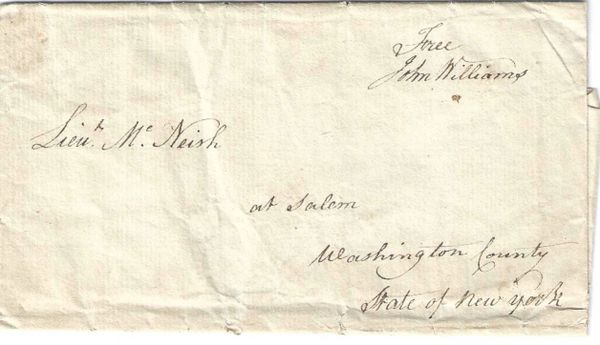 Free
John Williams
Lieut. Mc. Neish
at Salem
Washington County
State of New York